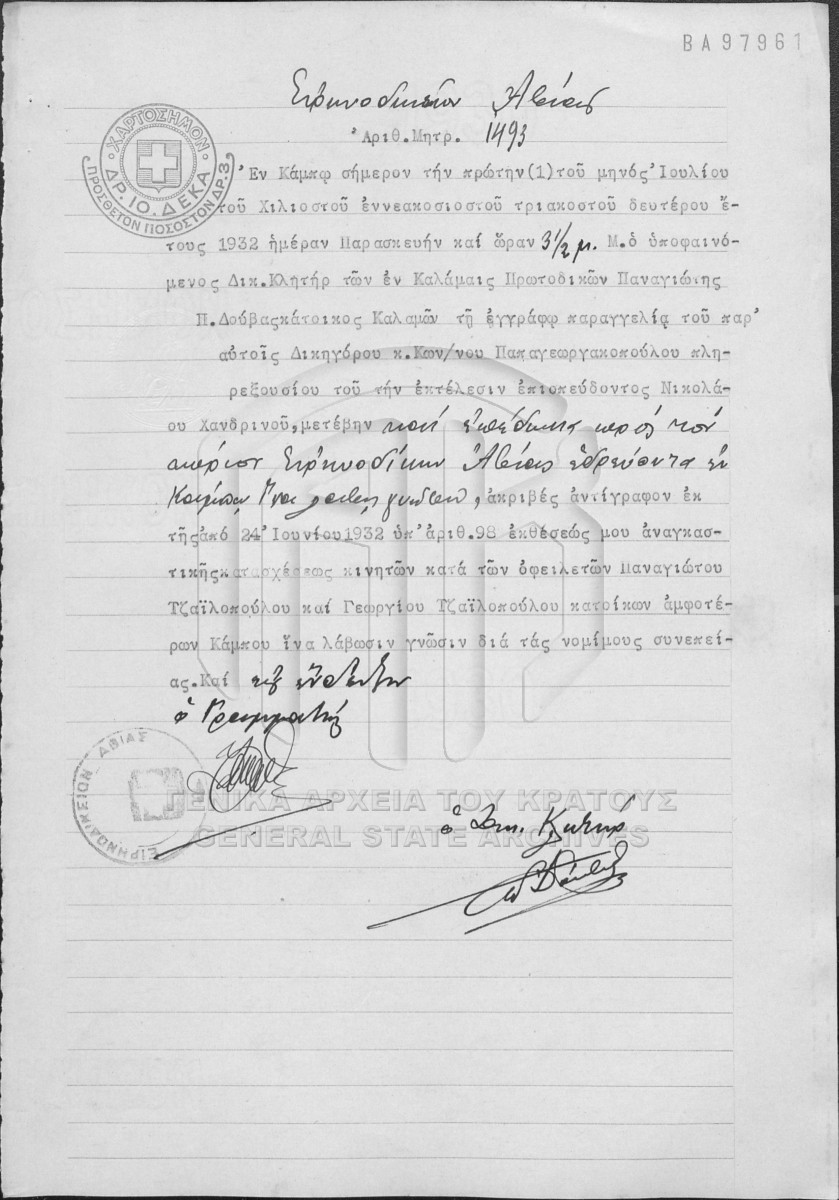 ΒΑ97961
Ειρηνοδικείον Αβίας
Ἀριθ.Μητρ. 1493
ΧΑΡΤΟΣΗΜΟΝ
ΔΡ. ΙΟ. ΔΕΚΑ
ΠΡΟΣΘΕΤΟΝ ΠΟΣΟΣΤΟΝ ΔΡ. 3.
Ἐν Κάμπῳ σήμερον τήν πρώτην(1)τοῦ μηνός Ἰουλίου
τοῦ Χιλιοστοῦ ἐννεακοσιοστοῦ τριακοστοῦ δευτέρου ἔ-
τους 1932 ἡμέραν Παρασκευήν καί ὥραν 3 1/2 μ. Μ.ὁ ὑποφαινό-
μενος Δικ.Κλητήρ τῶν ἐν Καλάμαις Πρωτοδικῶν Παναγιώτης
Π.Δούβαςκάτοικος Καλαμῶν τῇ ἐγγράφῳ παραγγελίᾳ τοῦ παρ'
αὐτοῖς Δικηγόρου κ.Κων/νου Παπαγεωργακοπούλου πλη-
ρεξουσίου τοῦ τήν ἐκτέλεσιν ἐπισπεύδοντος Νικολά-
ου Χανδρινοῦ,μετέβην καί ἐπέδωσα πρός τόν
κύριον Εἰρηνοδίκην Ἀβίας ἑδρεύοντα ἐν
Κάμπῳ ἵνα λάβῃ γνῶσιν, ἀκριβές ἀντίγραφον ἐκ
τῆςἀπό 24 Ἰουνίου1932 ὑπ'ἀριθ.98 ἐκθέσεώς μου ἀναγκασ-
τικῆςκατασχέσεως κινητῶν κατά τῶν ὀφειλετῶν Παναγιώτου
Τζαϊλοπούλου καί Γεωργίου Τζαϊλοπούλου κατοίκων ἀμφοτέ-
ρων Κάμπου ἵνα λάβωσιν γνῶσιν διά τάς νομίμους συνεπεί-
ας.Καί εἰς ἔνδειξιν
ὁ Γραμματεύς
ΕΙΡΗΝΟΔΙΚΕΙΟΝ ΑΒΙΑΣ
ΓΕΝΙΚΑ ΑΡΧΕΙΑ ΤΟΥ ΚΡΑΤΟΥΣ
GENERAL STATE ARCHIVES
ὁ Δικ. Κλητήρ